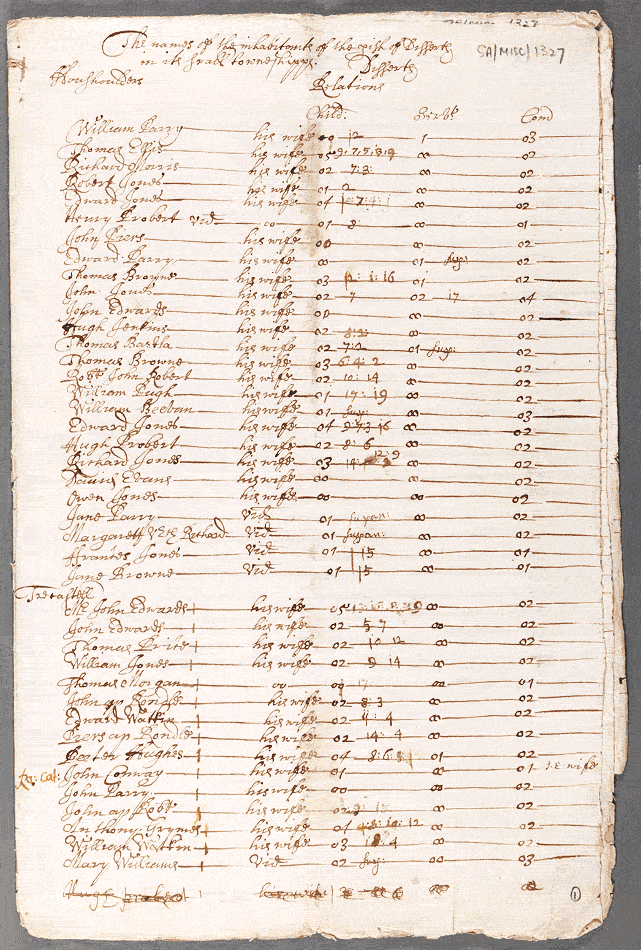 1327
SA/MISC/1327
The names of the inhabitants of the pish of Disserth
in its townshipps. Disserth
Relations
Child:
William Parry his wife 00 12 1 03
Thomas Ellis his wife 05 00 02
Richard Morris his wife 02 7:3: 00 02
Robert Jones his wife 01 2 00 02
Edward Jones his wife 04 00 02
Henry Probert vid 00 01 8 00 01
John Piers his wife 00 00 02
Edward Parry his wife 00 01 02
Thomas Browne his wife 03 12:1:16 01 02
John Jones his wife 02 7 02 17 04
John Edwards his wife 00 00 02
Hugh Jenkins his wife 02 00 02
Thomas Bartla his wife 02 7:2 01 02
Thomas Browne his wife 03 6:4:2 00 02
Robt John Robert his wife 02 10:14 00 02
William Pugh his wife 01 17:19 00 02
William Beeban his wife 01 00 03
Edward Jones his wife 04 9:7:3:16 00 02
Hugh Probert his wife 02 8:6 00 02
Richard Jones his wife 03 14 12:9 00 02
Evans his wife 00 00 02
Owen Jones his wife 00 00 02
Jane Parry Vid 01 00 02
Margarett Vch Richard Vid 01 00 02
Frances Jones Vid 01 15 00 01
Jane Browne Vid 01 15 00 01
Trecastell
Mr John Edwards his wife 05 00 02
John Edwards his wife 02 5 7 00 02
Thomas Price his wife 02 10 12 00 02
William Jones his wife 02 9 14 00 02
Thomas Morgan 00 17 00 01
John ap his wife 02 8:3 00 02
Edward Wattkin his wife 02 4 00 02
Piers ap his wife 02 14:4 00 02
Peeter Hughes his wife 04 8:6 01 02
John Conway his wife 01 00 01 wife
John Parry his wife 00 00 02
John ap Robt his wife 02 9:15 00 02
Anthony Grymes his wife 04 00 02
William Wattkin his wife 03 4 00 02
Mary Williams Vid 02 00 03
Hugh his wife
1